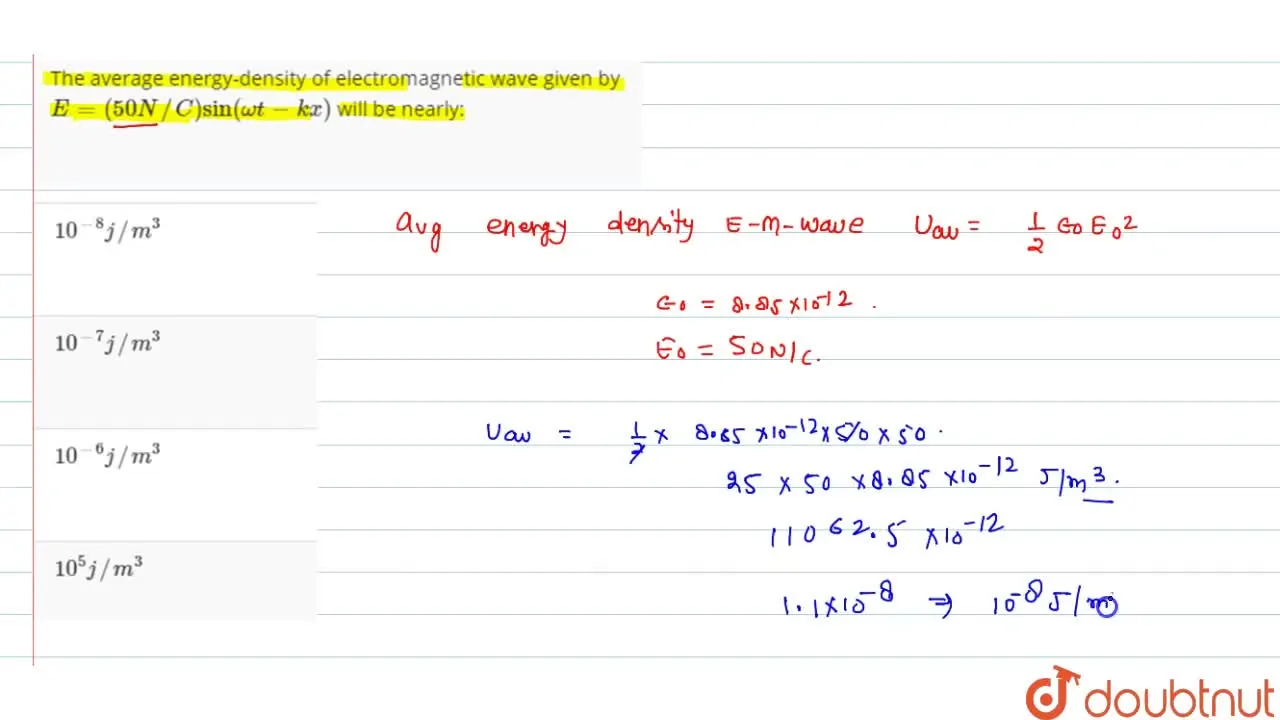 The average energy-density of electromagnetic wave given by
E = (50N/C)sin(ωt − kx) will be nearly:
10⁻⁸j/m³
Avg energy density E-M-wave Uav = 1/2 ϵ0 E0²
ϵ0 = 8.85×10⁻¹² .
E0 = 50N/C.
10⁻⁷j/m³
Uav = 1/2 × 8.85 ×10⁻¹² × 50 × 50 .
10⁻⁶j/m³
25 × 50 × 8.85 ×10⁻¹² J/m³ .
11062.5 ×10⁻¹²
10⁵j/m³
1.1×10⁻⁸ ⇒ 10⁻⁸ J/m
doubtnut